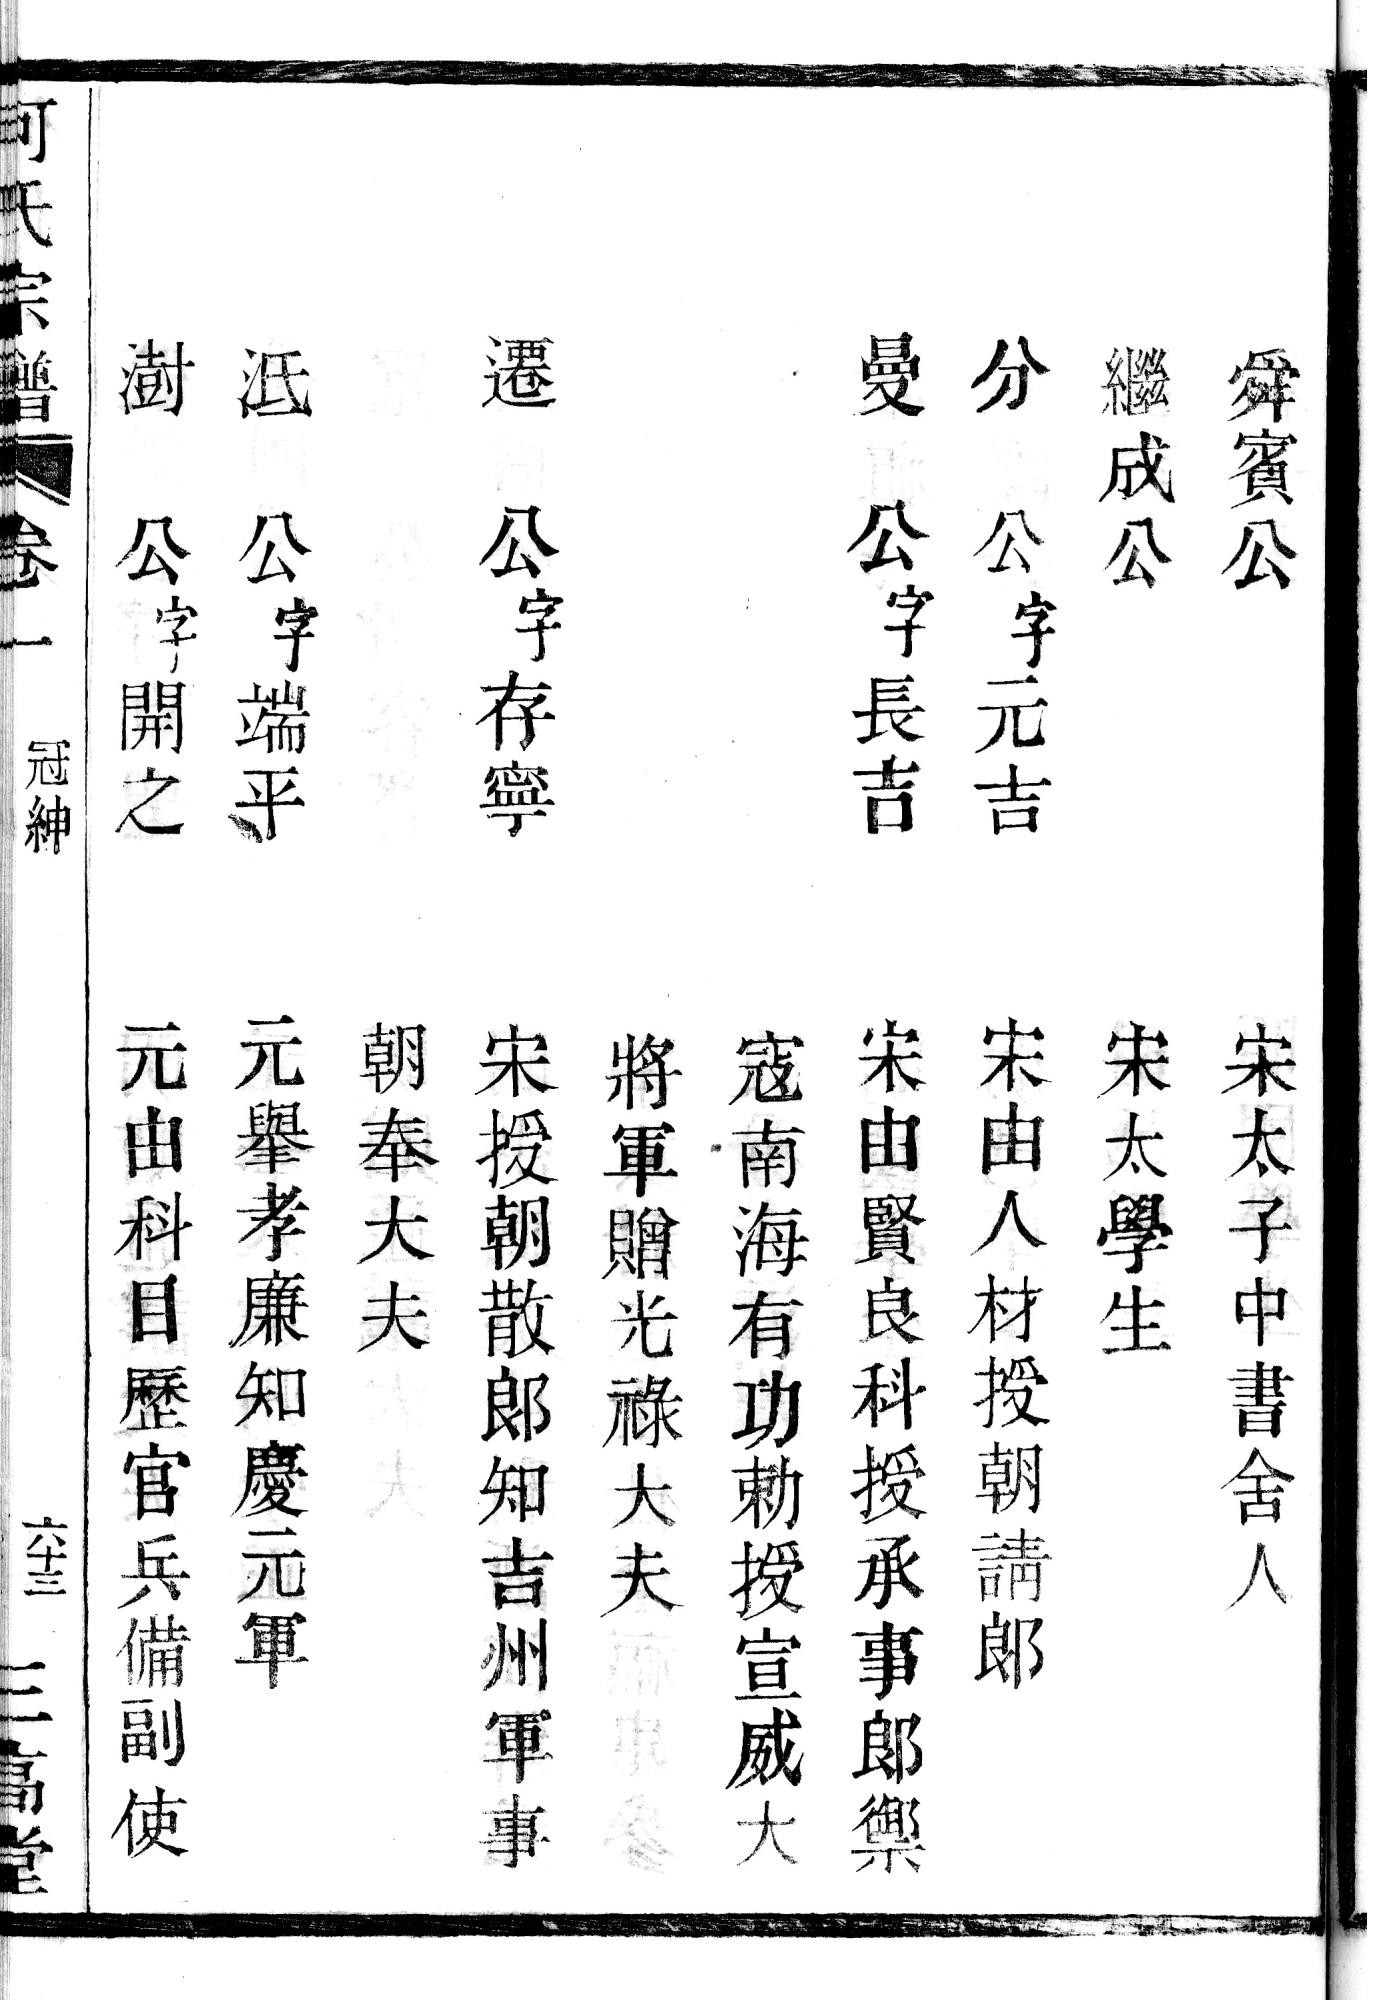 舜賓公 宋太子中書舍人
繼成公 宋太學生
分 公字元吉 宋由人材授朝請郎
曼 公字長吉 宋由賢良科授承事郎禦
寇南海有功勅授宣威大
將軍贈光祿大夫
遷 公字存寧 宋授朝散郎知吉州軍事
朝奉大夫
泜 公字端平 元舉孝廉知慶元軍
澍 公字開之 元由科目歷官兵備副使
何氏宗譜 卷一 冠紳 六十三 三高堂